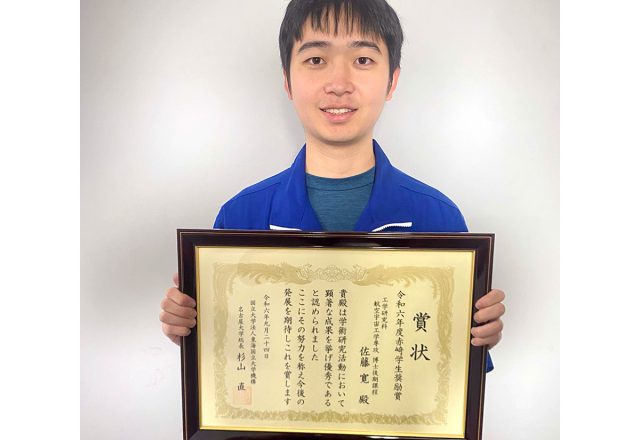 賞状
令和六年度赤﨑学生奨励賞
工学研究科
航空宇宙工学専攻 博士後期課程
佐藤 寛 殿
貴殿は学術研究活動において
顕著な成果を挙げ優秀である
と認められました
ここにその努力を称え今後の
発展を期待しこれを賞します
令和六年九月二十四日
国立大学法人東海国立大学機構
名古屋大学総長 杉山 直